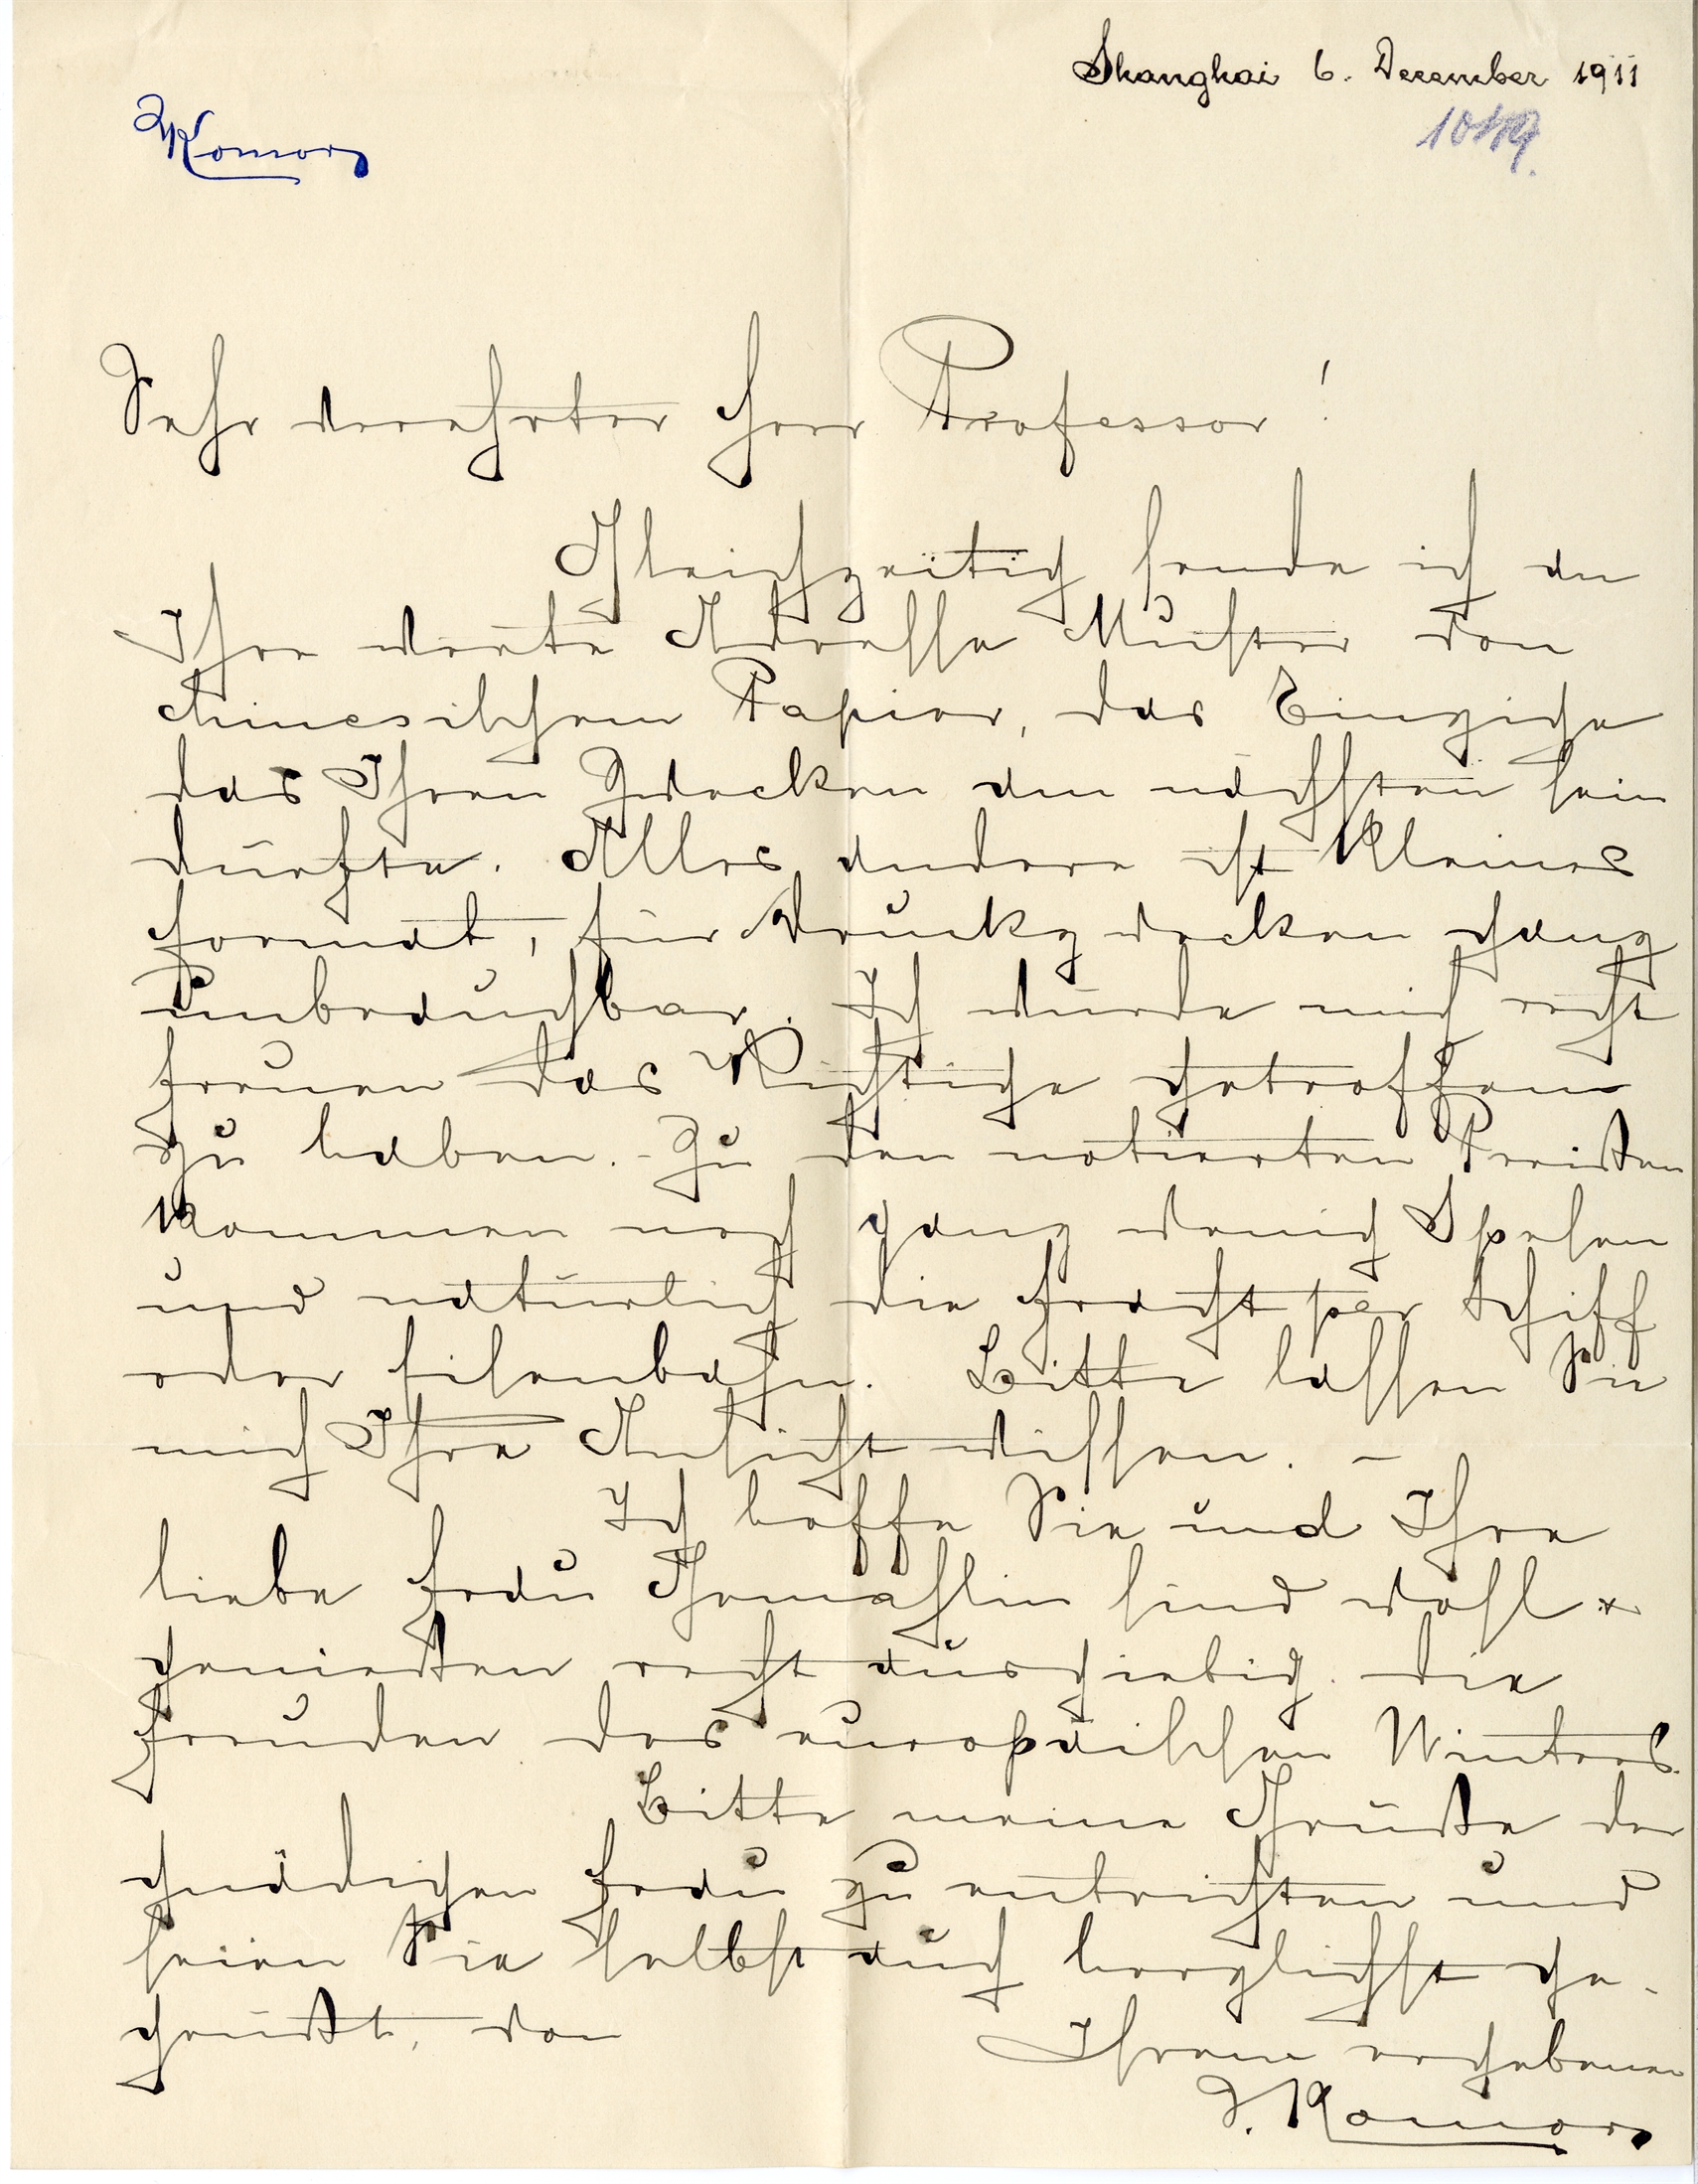 Shanghai 6. Dezember 1911
Komor
Sehr verehrter Herr Professor!
Gleichzeitig sende ich an
Ihre werte Adresse Muster von
chinesischem Papier, das Einzige
das Ihren Zwecken am nächsten sein
dürfte. Alles andere ist kleines
Format, für Druckzwecken ganz
unbrauchbar. Ich würde mich recht
freuen das Richtige getroffen
zu haben. - Zu den notierten Preißen
kommen noch ganz wenig Spesen
und natürlich die Fracht per Schiff
oder Eisenbahn. Bitte lassen Sie
mich Ihre Ansicht wissen. -
Ich hoffe Sie und Ihre
liebe Frau Gemahlin sind wohl &
genießen recht ausgiebig die
Freuden des europäischen Winters.
Bitte meine Grüße der
gnädigen Frau zu entrichten und
seien Sie selbst auch herzlichst ge-
grüßt, von
Ihrem ergebenen
I. Komor